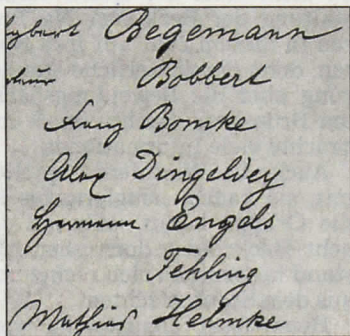 Begemann
Bobbert
Franz Bomke
Alex Dingeldey
Hermann Engels
Fehling
Mathias Helmke